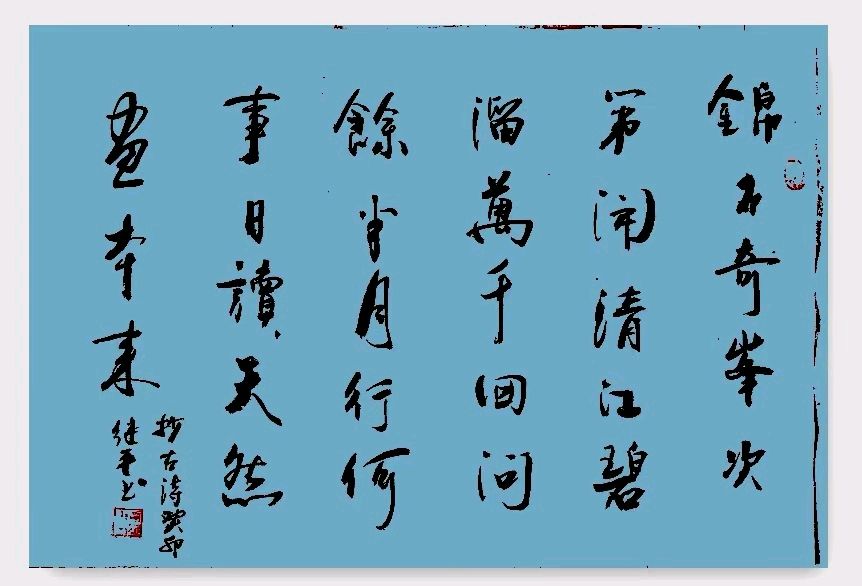 錦石奇峯次
第開清江碧
溜萬千回問
餘半月行何
事日讀天然
畫本来
抄古诗癸卯
继平书